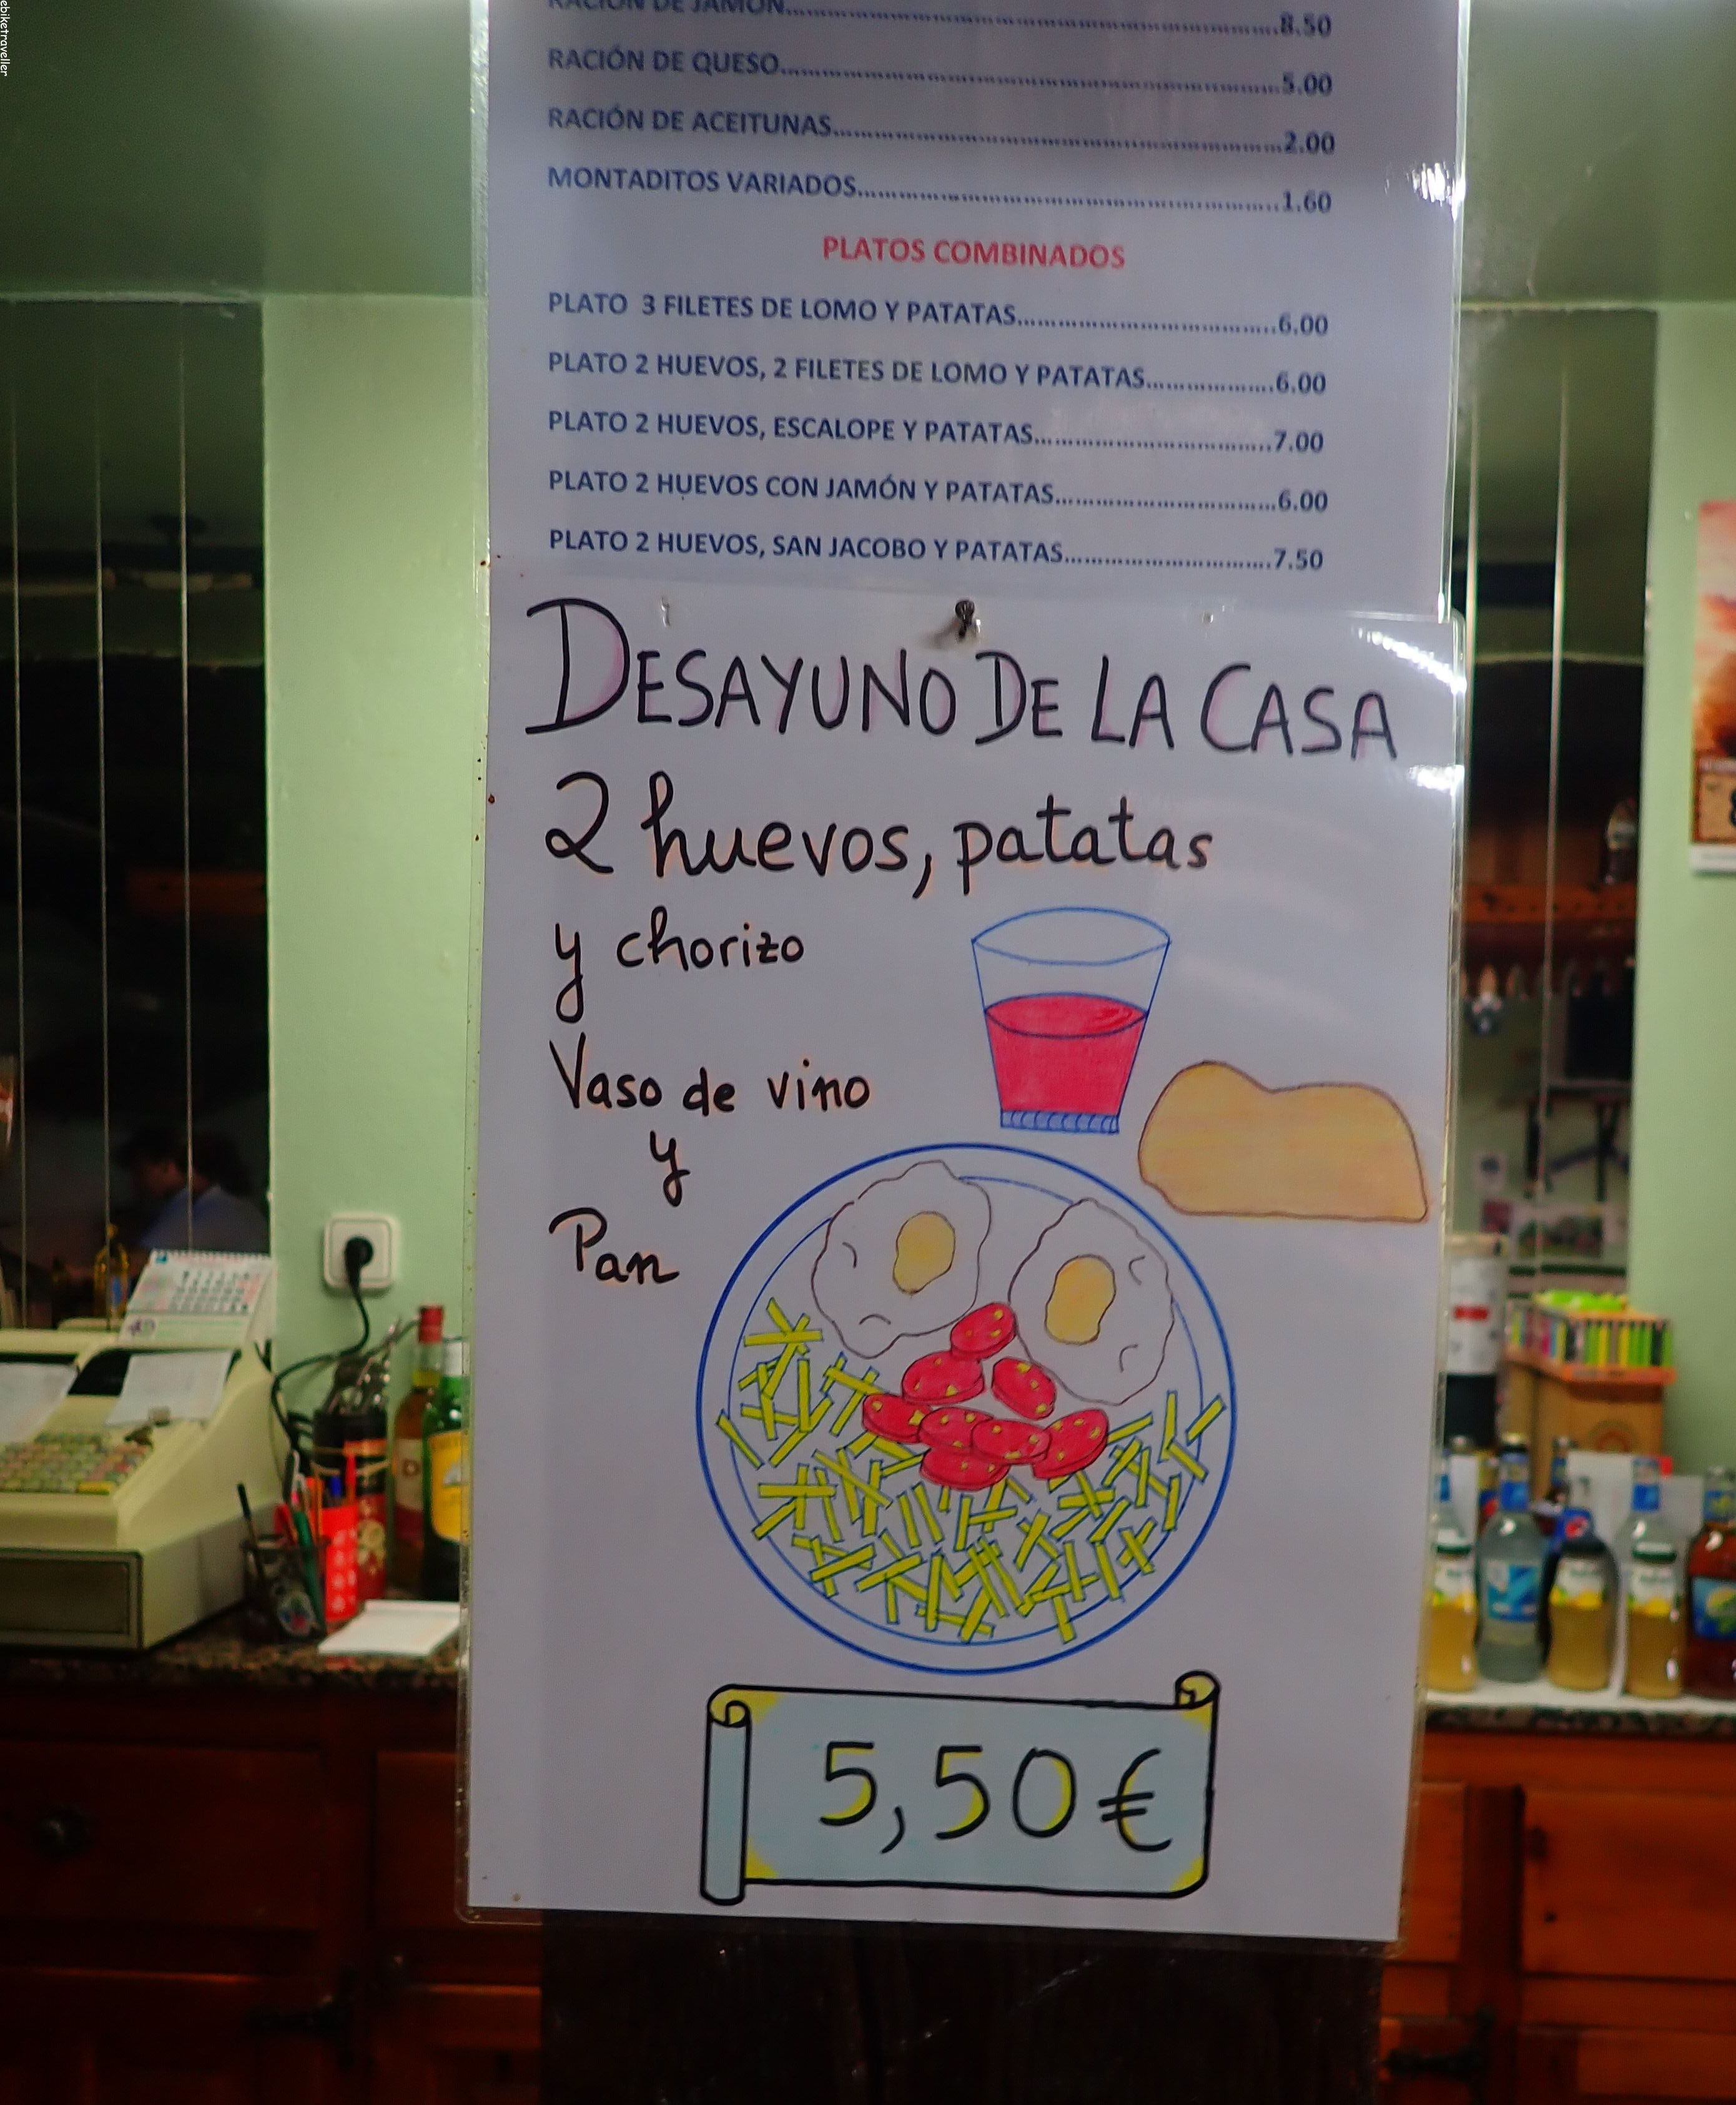 ebiketraveller
RACIÓN DE JAMÓN 8.50
RACIÓN DE QUESO 5.00
RACIÓN DE ACEITUNAS 2.00
MONTADITOS VARIADOS 1.60
PLATOS COMBINADOS
PLATO 3 FILETES DE LOMO Y PATATAS 6.00
PLATO 2 HUEVOS, 2 FILETES DE LOMO Y PATATAS 6.00
PLATO 2 HUEVOS, ESCALOPE Y PATATAS 7.00
PLATO 2 HUEVOS CON JAMÓN Y PATATAS 6.00
PLATO 2 HUEVOS, SAN JACOBO Y PATATAS 7.50
DESAYUNO DE LA CASA
2 huevos, patatas
y chorizo
Vaso de vino
y
Pan
5,50€